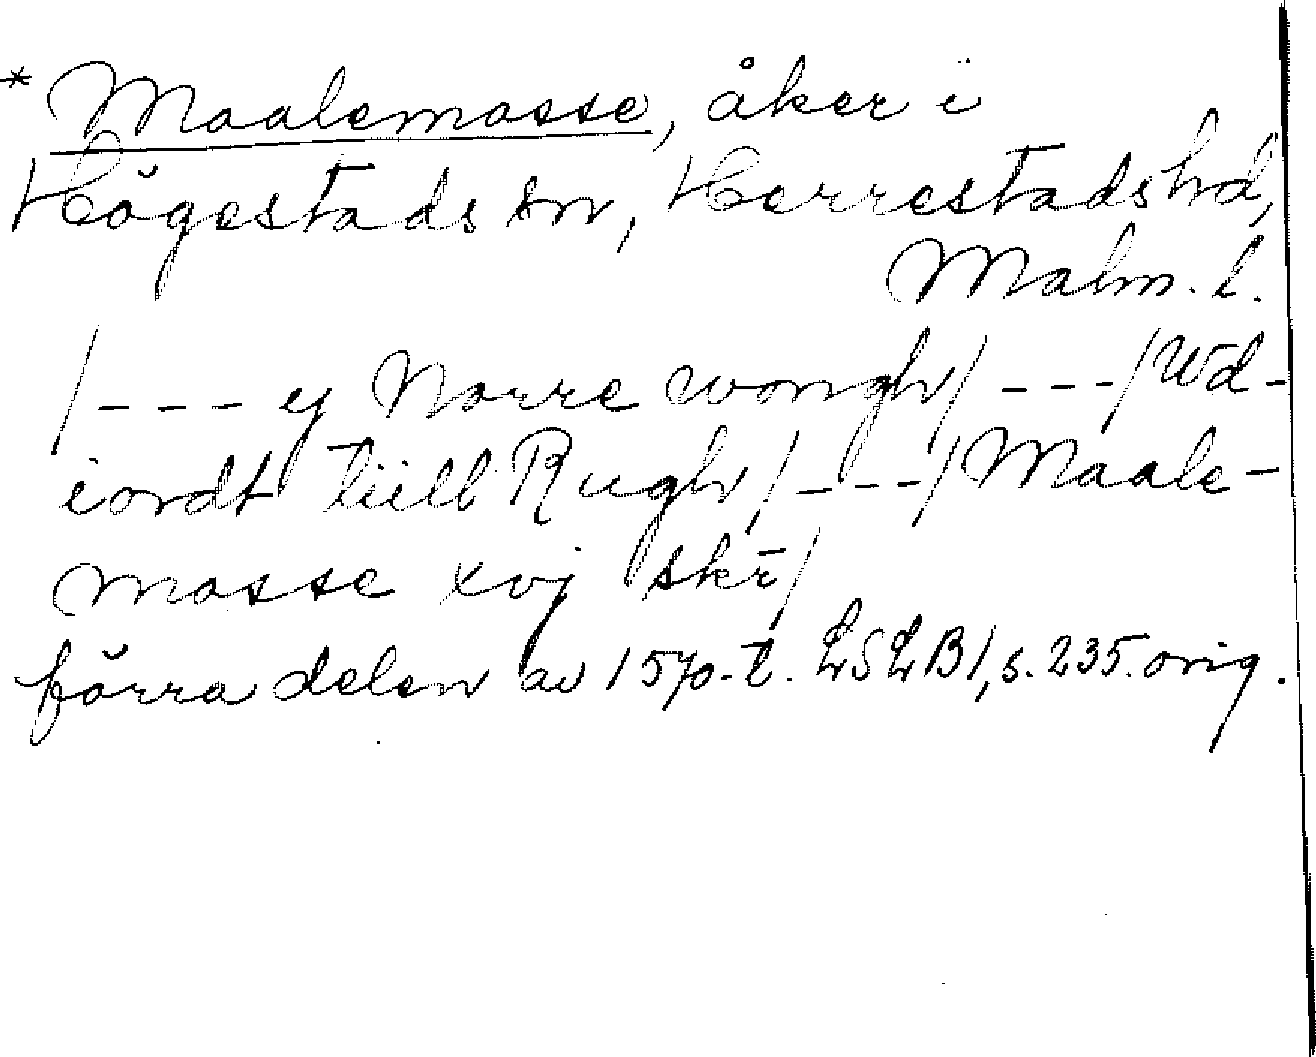 * Maalemosse, åker i
Högestads sn, Herrestads hd,
Malm. l.
/--- ej Norre wongh/ ---/Wd-
iordt tiill Rugh/---/Maale-
mosse xvj skr̄/
förra delen av 1570-t. LSLB1, s. 235. orig.